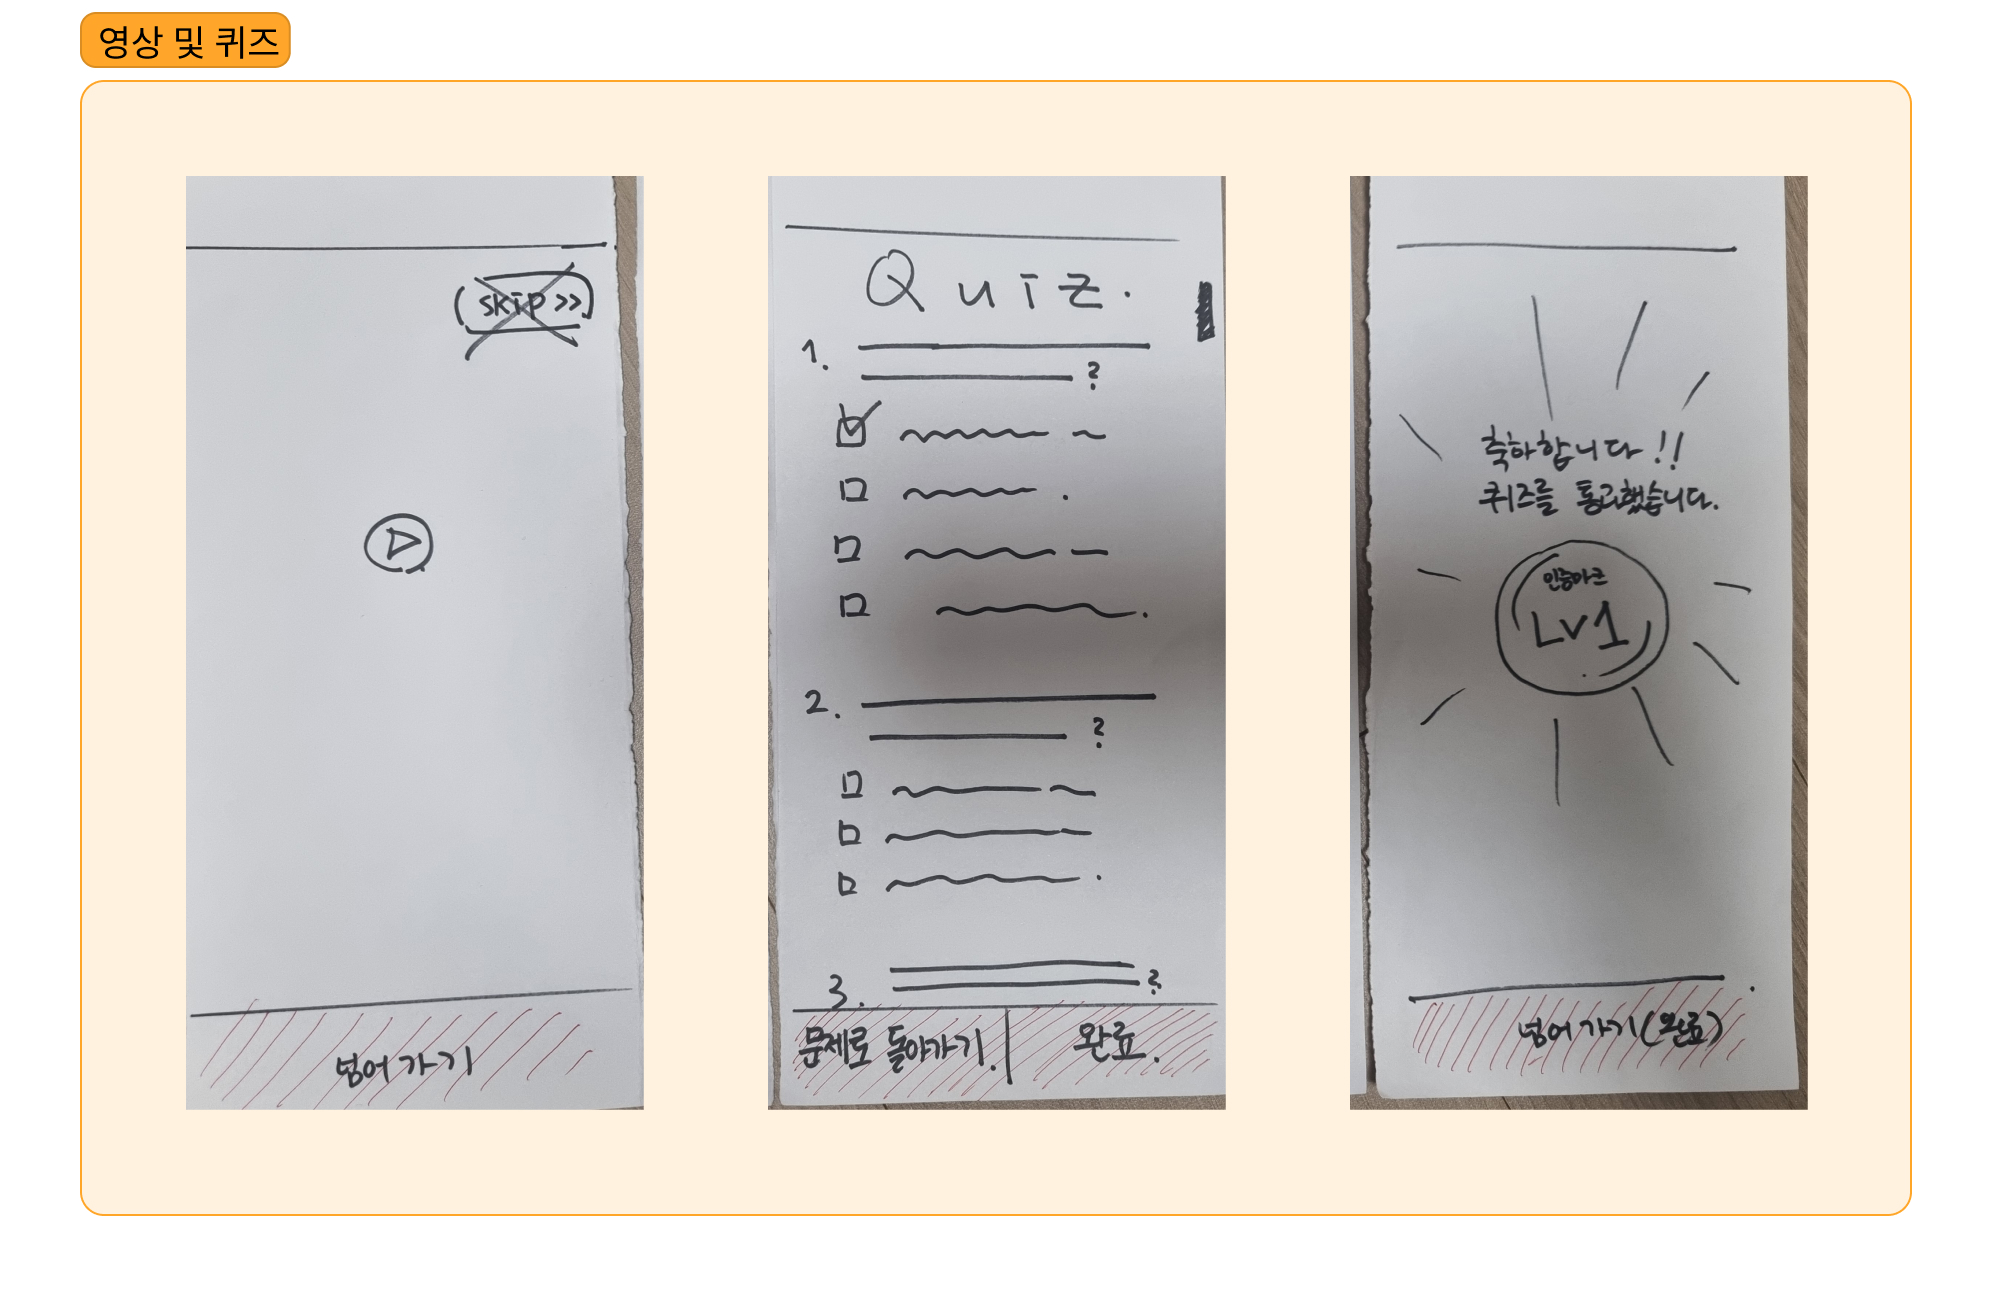 영상 및 퀴즈
skip >>
넘어가기
Quiz.
1.
?
2.
?
3.
?
문제로 돌아가기.
완료.
축하합니다!!
퀴즈를 통과했습니다.
인증마크
Lv1
넘어가기(완료)